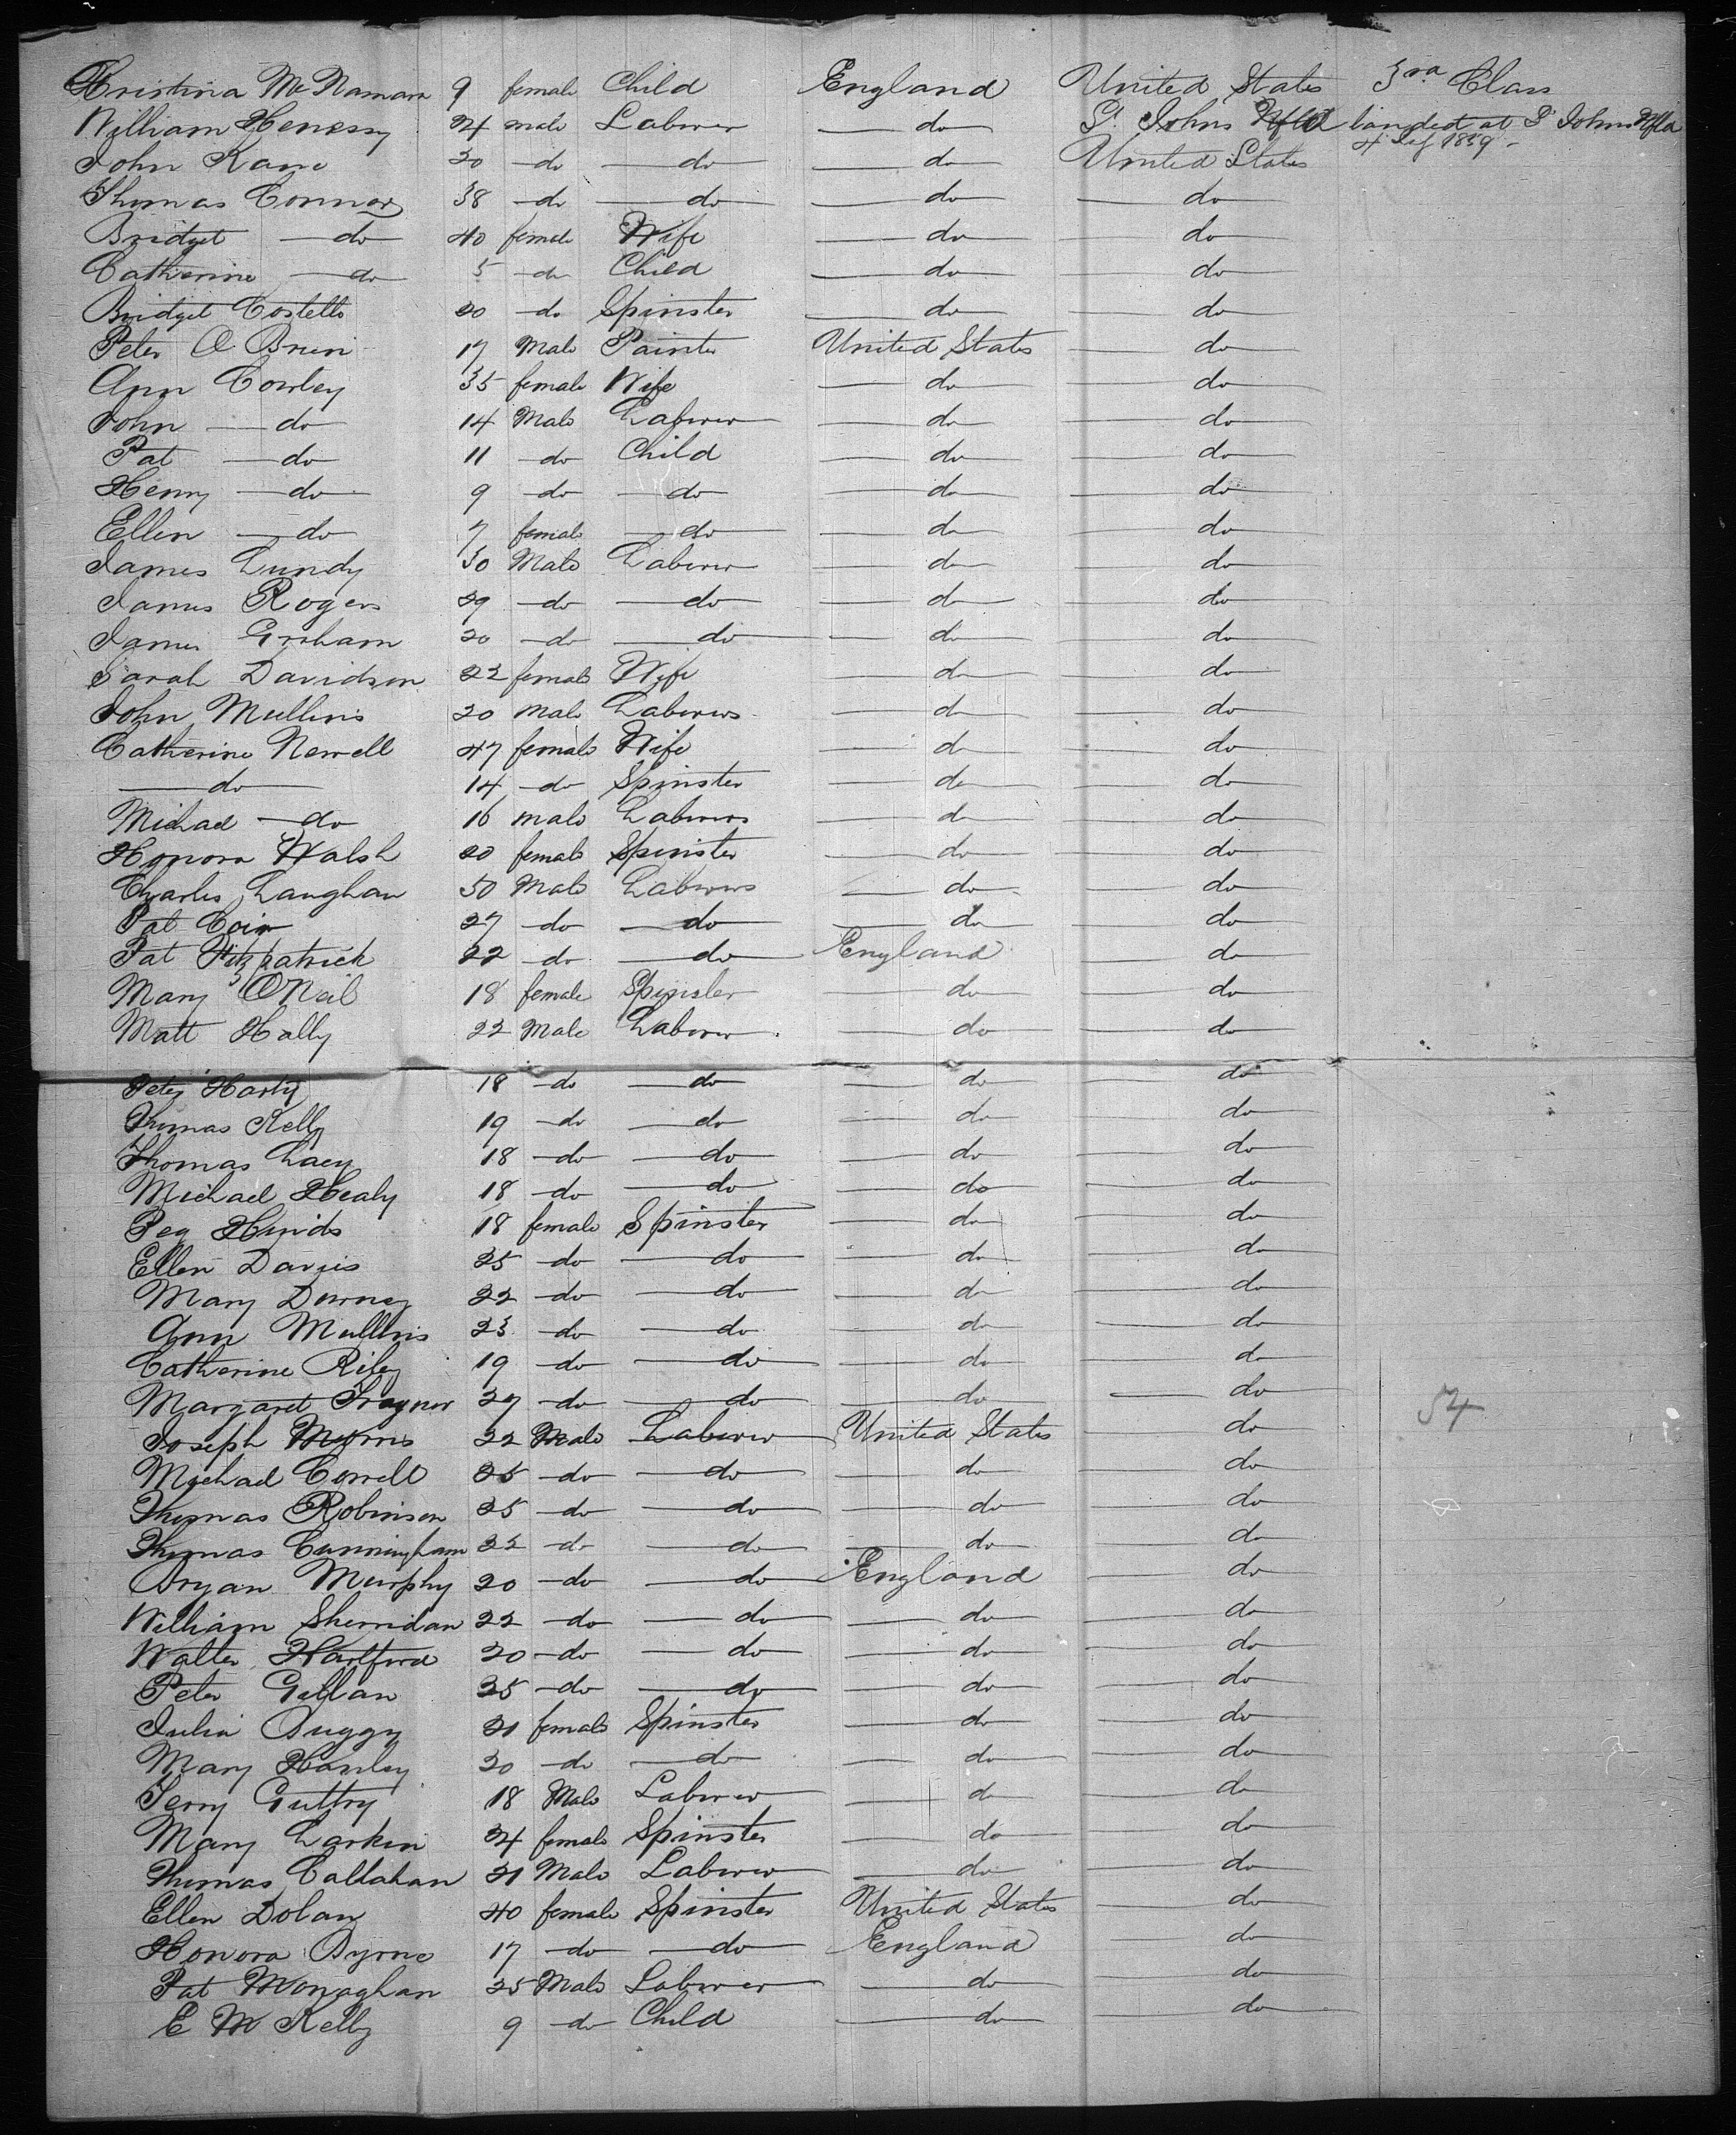 Christina McNamara 9 female Child England United States 3rd Class
William Henessy 24 male Laborer do St Johns Nfld landed at St Johns Nfld
John Kane 20 do do do United States 4 1859
Thomas Connor 38 do do do do
Bridget do 40 female Wife do do
Catherine do 5 do Child do do
Bridget Costello 20 do Spinster do do
Peter O Brien 17 Male Painter United States do
Ann Cowley 35 female Wife do do
John do 14 Male Laborer do do
Pat do 11 do Child do do
Henry do 9 do do do do
Ellen do 7 female do do do
James Lundy 30 Male Laborer do do
James Rogers 29 do do do do
James Graham 20 do do do do
Sarah Davidson 22 female Wife do do
John Mullins 20 male Laborer do do
Catherine Newell 47 female Wife do do
do 14 do Spinster do do
Michael do 16 male Laborer do do
Honora Walsh 20 female Spinster do do
Charles Langhan 50 Male Laborer do do
Pat Coin 27 do do do do
Pat Fitzpatrick 22 do do England do
Mary O'Neil 18 female Spinster do do
Matt Hally 22 Male Laborer do do
Peter Harty 18 do do do do
Thomas Kelly 19 do do do do
Thomas Lacy 18 do do do do
Michael Healy 18 do do do do
Peg Hinds 18 female Spinster do do
Ellen Davis 25 do do do do
Mary Downey 22 do do do do
Ann Mullins 23 do do do do
Catherine Riley 19 do do do do
Margaret Traynor 27 do do do do
Joseph Morris 22 Male Laborer United States do 54
Michael Correll 25 do do do do
Thomas Robinson 25 do do do do
Thomas Cunningham 22 do do do do
Bryan Murphy 20 do do England do
William Sherridan 22 do do do do
Walter Hartford 20 do do do do
Peter Gillan 25 do do do do
Julia Buggy 21 female Spinster do do
Mary Hanley 20 do do do do
Terry Guttry 18 Male Laborer do do
Mary Larkin 24 female Spinster do do
Thomas Callahan 21 Male Laborer do do
Ellen Dolan 40 female Spinster United States do
Honora Byrne 17 do do England do
Pat Monaghan 25 Male Laborer do do
E M Kelly 9 do Child do do